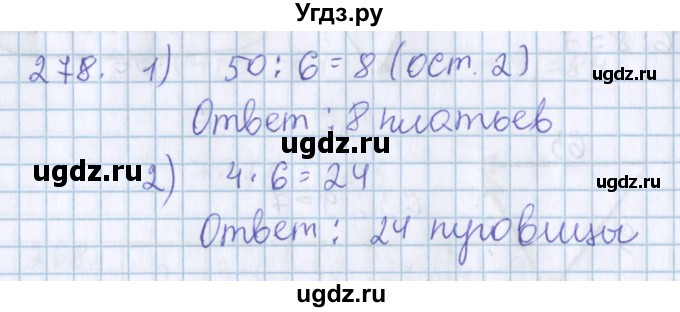 Угдз.ру
278. 1) 50 : 6 = 8 (ост. 2)
ugdz.ru
Ответ : 8 платьев
ugdz.ru
ugdz.ru
2) 4 · 6 = 24
ugdz.ru
Ответ : 24 пуговицы
ugdz.ru
ugdz.ru